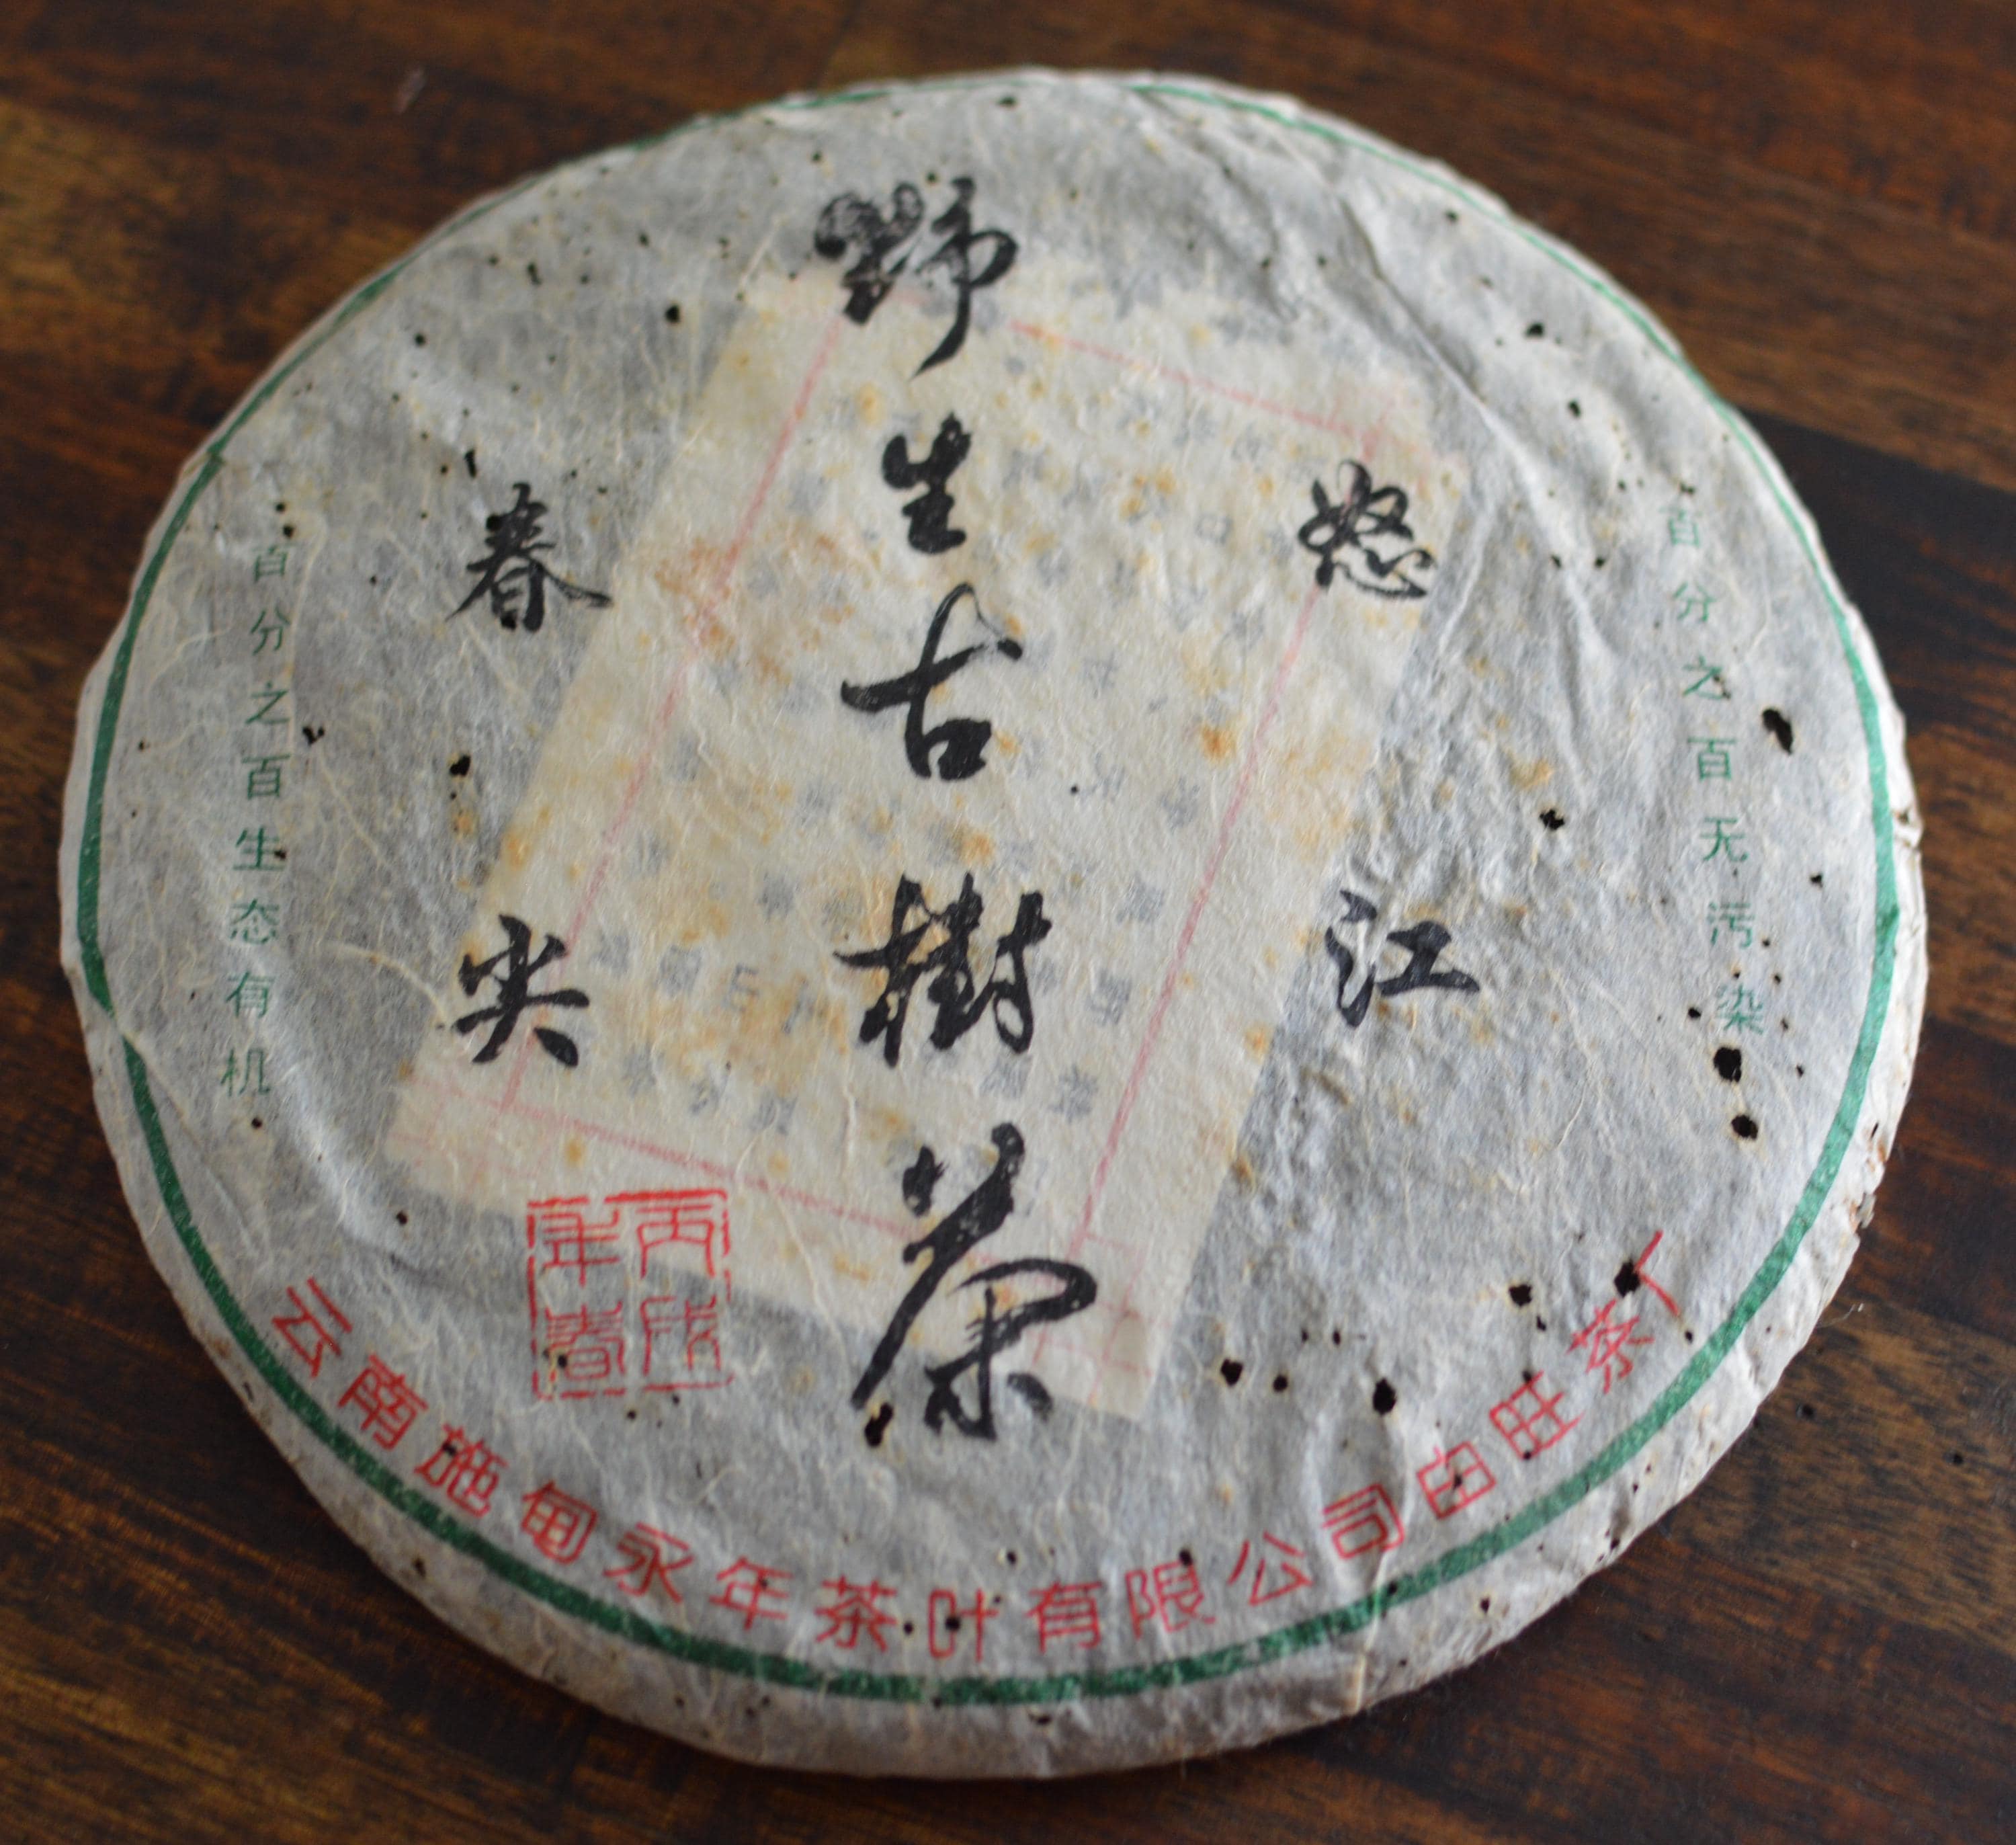 野生古樹茶
怒江
春尖
百分之百无污染
百分之百生态有机
丙戌年春
云南施甸永年茶叶有限公司由旺茶厂